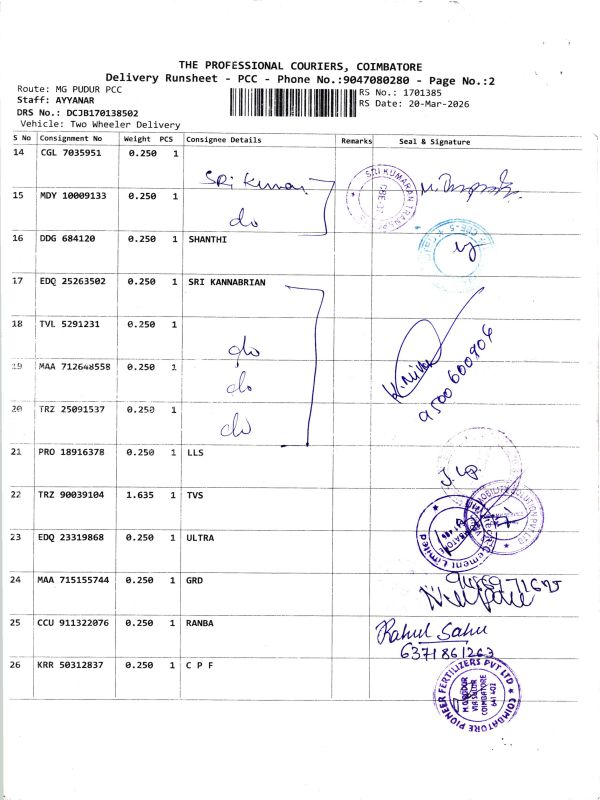 THE PROFESSIONAL COURIERS, COIMBATORE
Delivery Runsheet - PCC - Phone No.:9047080280 - Page No.:2
Route: MG PUDUR PCC
Staff: AYYANAR
DRS No.: DCJB170138502
Vehicle: Two Wheeler Delivery
RS No.: 1701385
RS Date: 20-Mar-2026
S No Consignment No Weight PCS Consignee Details Remarks Seal & Signature
14 CGL 7035951 0.250 1 SRi Kumar SRI KUMARAN
15 MDY 10009133 0.250 1 do
16 DDG 684120 0.250 1 SHANTHI
17 EDQ 25263502 0.250 1 SRI KANNABRIAN
18 TVL 5291231 0.250 1 do
19 MAA 712648558 0.250 1 do
9500600906
20 TRZ 25091537 0.250 1 do
21 PRO 18916378 0.250 1 LLS
22 TRZ 90039104 1.635 1 TVS
23 EDQ 23319868 0.250 1 ULTRA
Cement Limited
24 MAA 715155744 0.250 1 GRD
25 CCU 911322076 0.250 1 RANBA Rahul Sahu
6371861263
26 KRR 50312837 0.250 1 C P F
COIMBATORE PIONEER FERTILIZERS PVT LTD
COIMBATORE
641 402